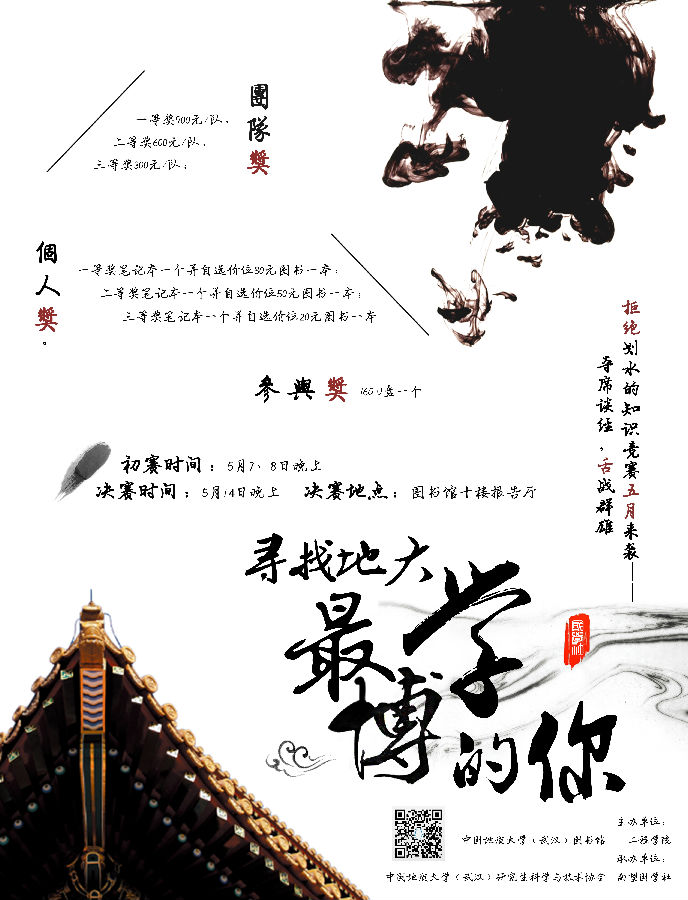 團隊獎
一等奖900元/队，
二等奖600元/队，
三等奖300元/队；
個人獎。
一等奖笔记本一个并自选价位80元图书一本；
二等奖笔记本一个并自选价位50元图书一本；
三等奖笔记本一个并自选价位20元图书一本
參與獎 16G U盘一个
拒绝划水的知识竞赛五月来袭——
夺席谈经，舌战群雄
初赛时间：5月7、8日晚上
决赛时间：5月14日晚上 决赛地点：图书馆十楼报告厅
寻找地大
最学
博的你
主办单位：
中国地质大学（武汉）图书馆 工程学院
承办单位：
中国地质大学（武汉）研究生科学与技术协会 南望图学社